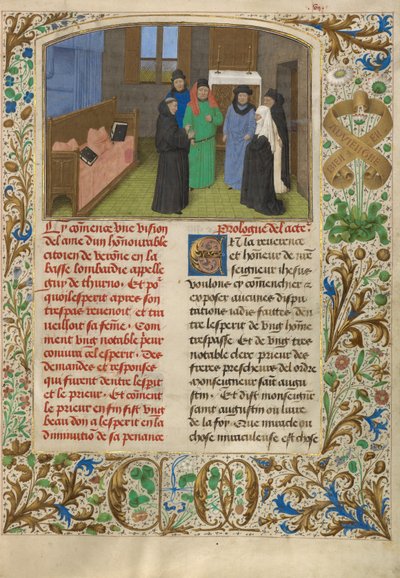 Cy commence vne vision
de lame dun honnourable
citoien de veronne en la
basse lombardie appelle
guy de thurno. Et po²
quoi lesperit apres son
trespas reuenoit et tra
ueilloit sa feme. Com
ment vng notable peur
coniura cel esperit. Des
demandes et responses
qui furent dentre lesprit
et le prieur. Et coment
le prieur en fin fist vng
beau don a lesperit en la
diminutio de sa penance
Prologue del acte.
En la reuerence
et honeur de nre
seigneur ihesus
voulons cy commenchier
exposer aucunes dispu
tations iadis faittes den
tre lesperit de vng home
trespasse Et de vng tres
notable clerc prieur des
freres prescheurs del ordre
monseigneur saint augus
tin. Et dist monseignr
saint augustin ou liure
de la foy. Que miracle ou
chose miraculeuse est chose
C M